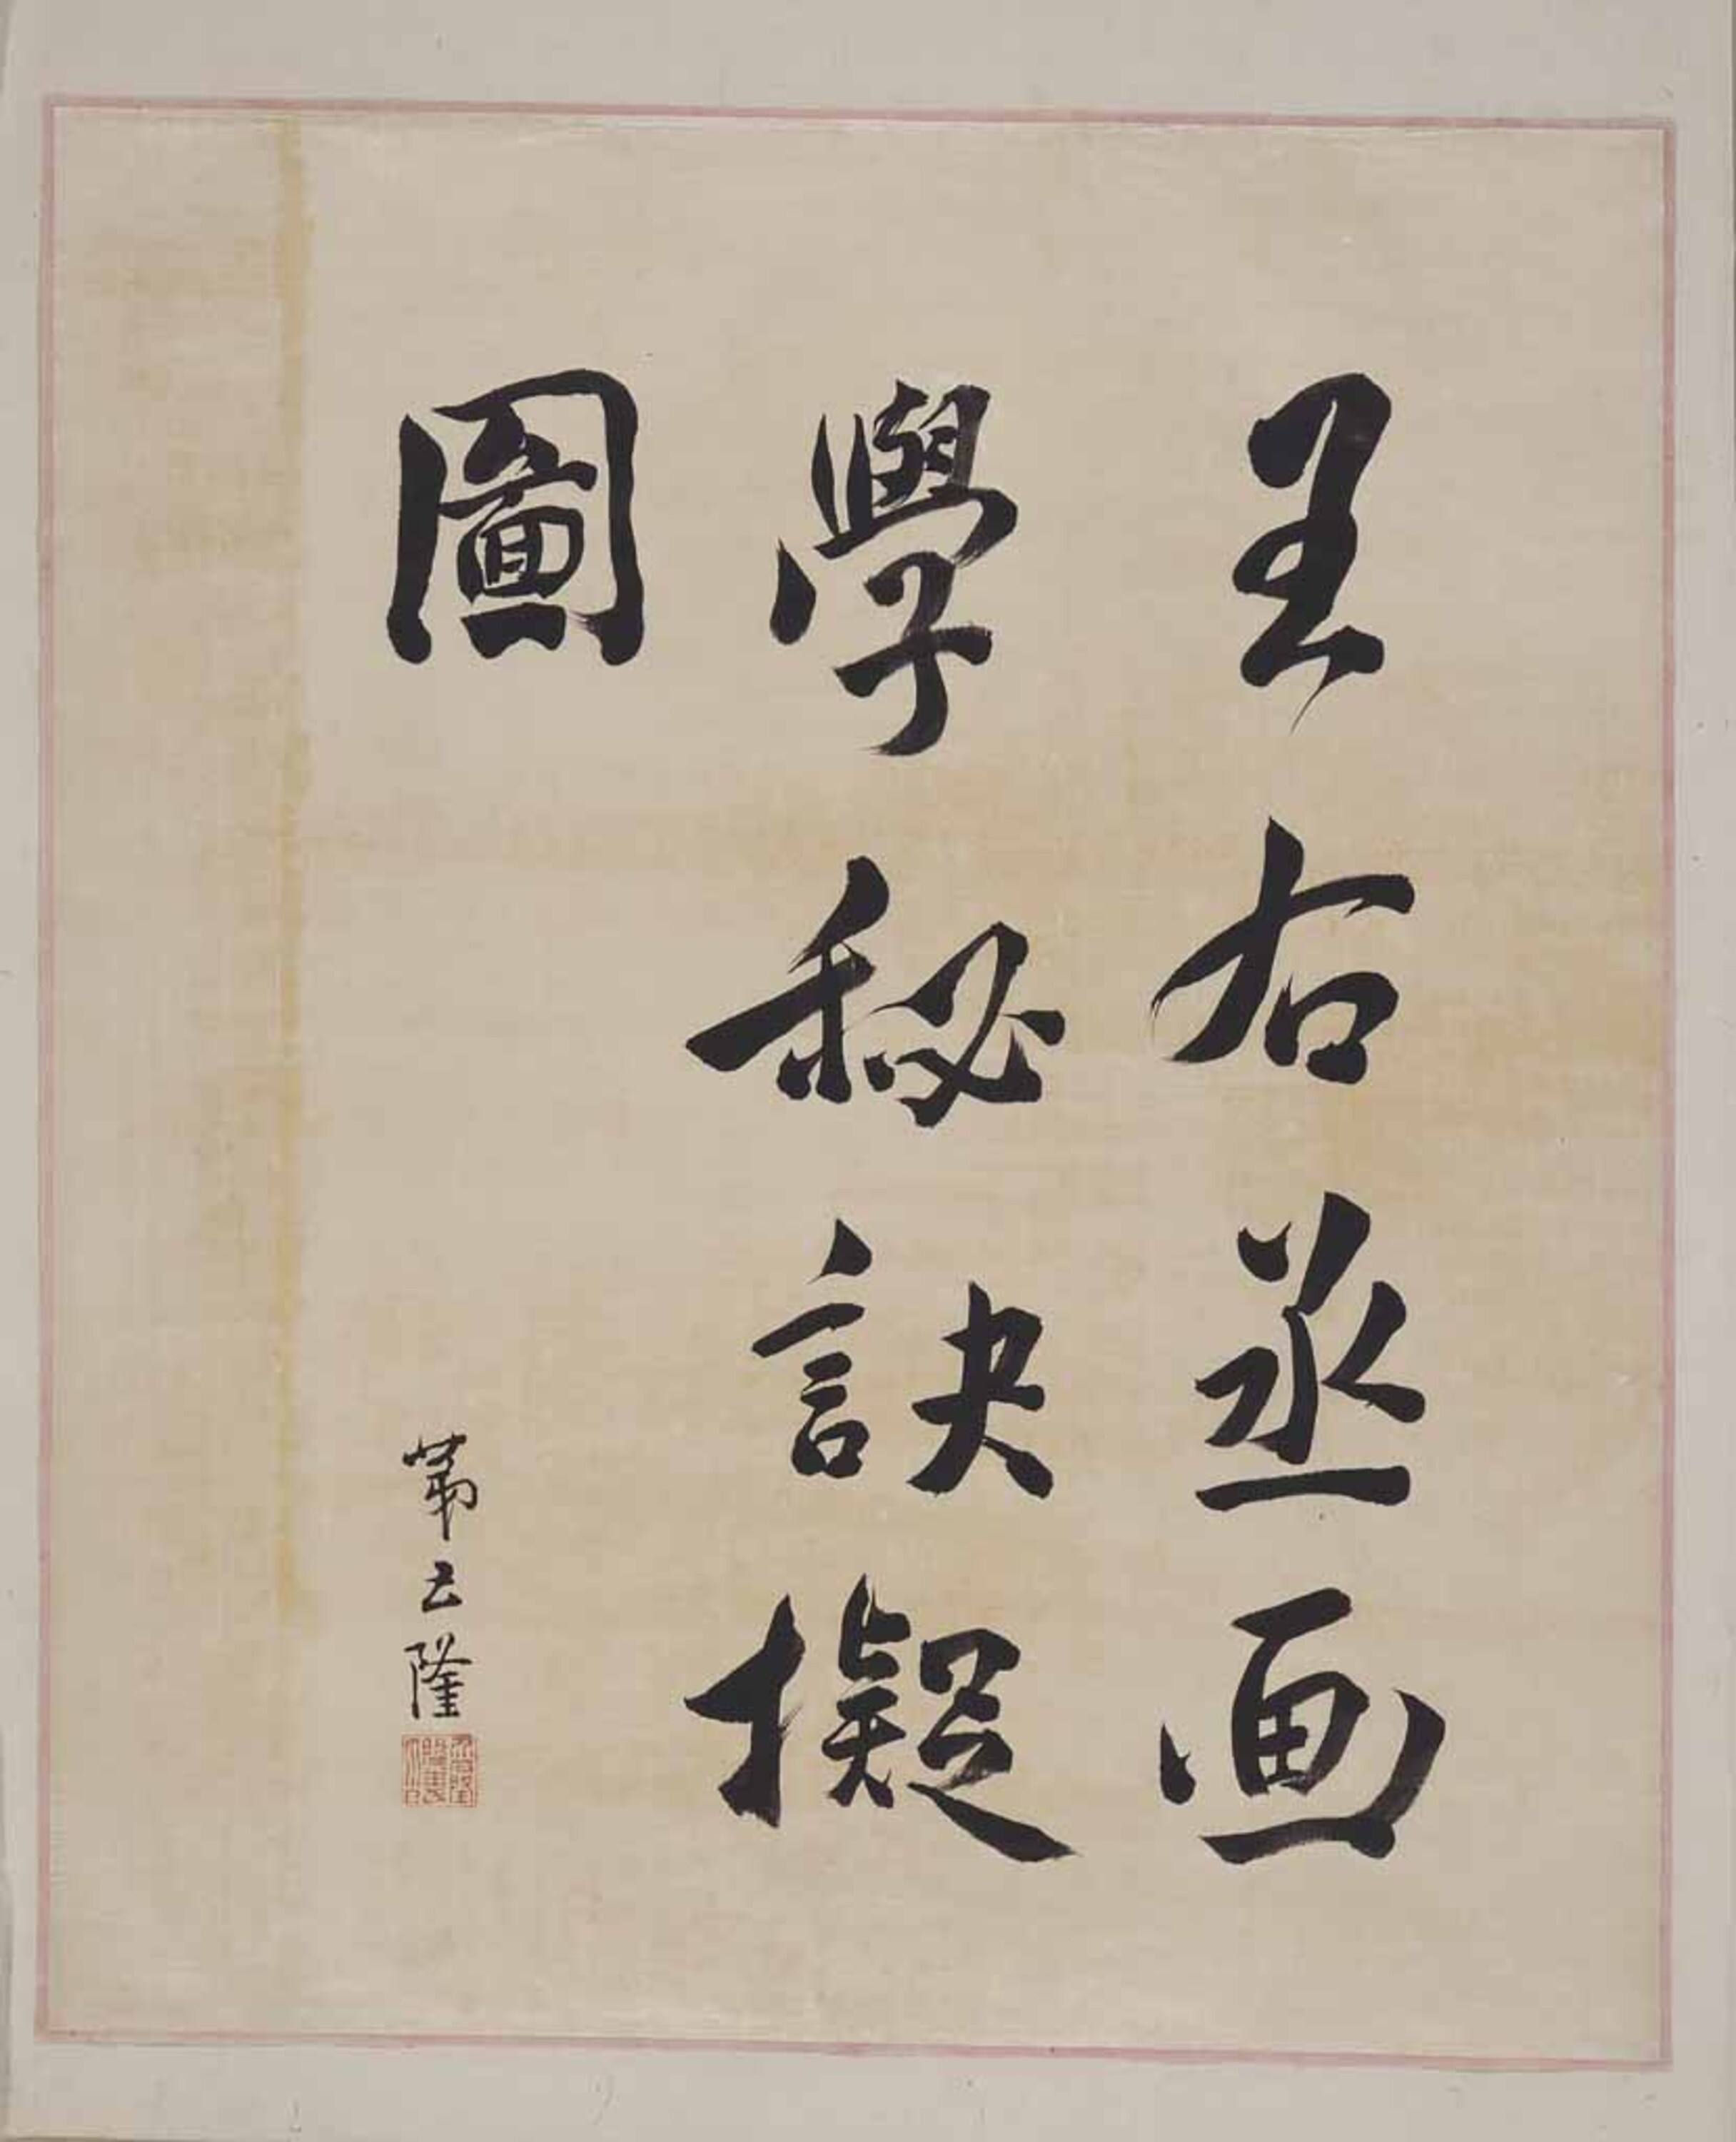 王右丞画
學秘訣擬
圖
第五隆